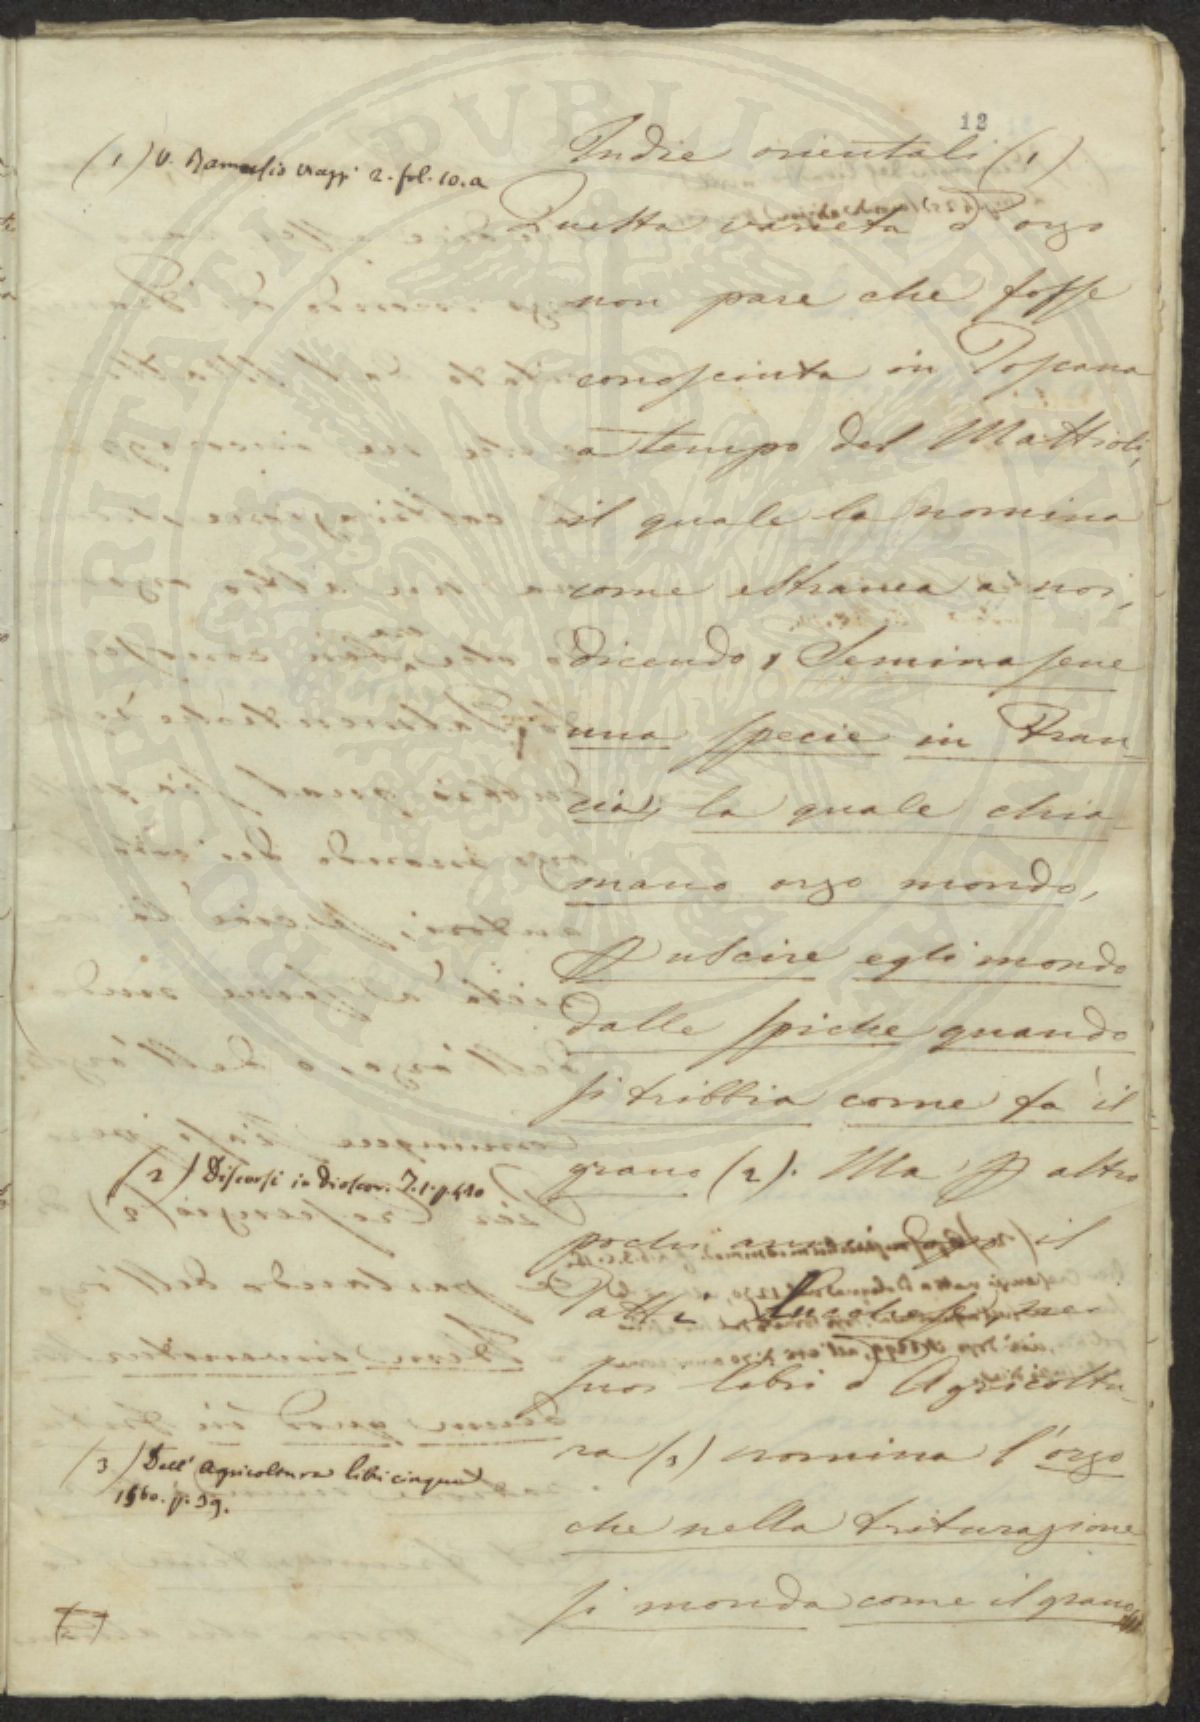 12
(1) V. Ramusio viaggi 2. fol. 10. a
Indie orientali (1)
Questa varietà d'orzo
non pare che fosse
conosciuta in Toscana
a tempo del Mattioli,
il quale la nomina
come estranea a noi,
dicendo, Seminasene
una specie in Fran-
cia, la quale chia-
mano orzo mondo,
P uscire egli mondo
dalle spiche quando
si tribbia come fa il
grano (2). Ma P altro
(2) Discorsi in Dioscor. T. 1. p. 410
pochi anni il
Tatti Lucchese, ne
suoi libri d'Agricoltu-
ra (3) nomina l'orzo
(3) Dell' Agricoltura libri cinque
1560. p. 39.
che nella triturazione
si monda come il grano